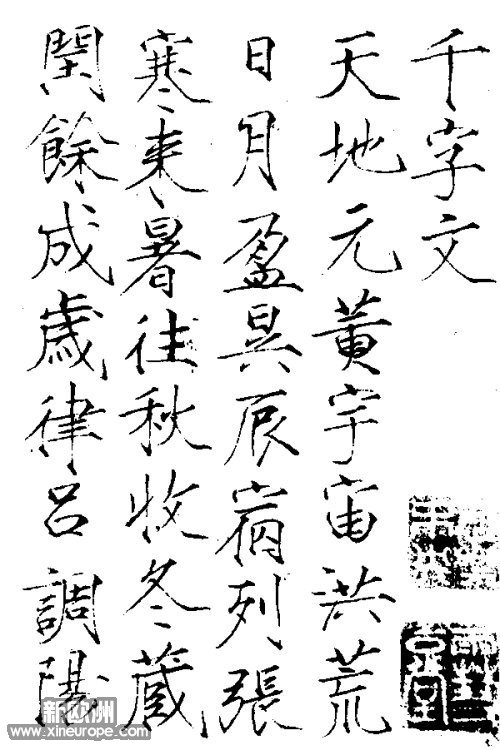 千字文
天地元黃宇宙洪荒
日月盈昃辰宿列張
寒来暑往秋收冬蔵
閏餘成歲律呂調陽
新欧洲
www.xineurope.com